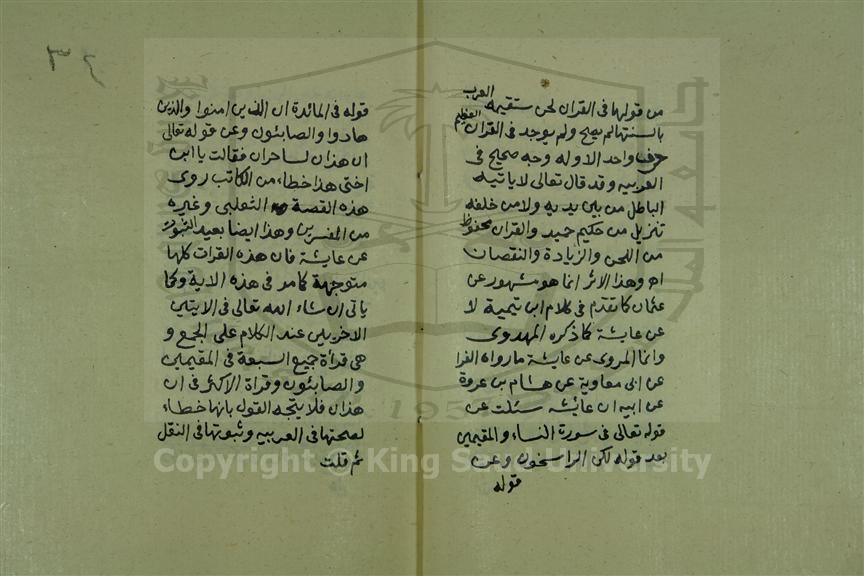 من قولها فى القران لحن ستقيمه العرب
بالسنتها لم يصح ولم يوجد فى القران العظيم
حرف واحد الا وله وجه صحيح فى
العربيه وقد قال تعالى لا ياتيه
الباطل من بين يديه ولا من خلفه
تنزيل من حكيم حميد والقران محفوظ
من اللحن والزيادة والنقصان
اه وهذا الاثر انما هو مشهور عن
عثمان كما تقدم فى كلام ابن تيمية لا
عن عايشة كما ذكره المهدوى
وانما المروى عن عايشة ما رواه الفرا
عن ابى معاوية عن هشام بن عروة
عن ابيه ان عائشه سئلت عن
قوله تعالى فى سورة النساء والمقيمين
بعد قوله لكن الراسخون وعن
قوله
٣٤
قوله فى المائدة ان الذين امنوا والذين
هادوا والصابئون وعن قوله تعالى
ان هذان لساحران فقالت يا ابن
اختى هذا خطاء من الكاتب روى
هذه القصة الثعلبى وغيره
من المفسرين وهذا ايضا بعيد الثبوت
عن عايشة فان هذه القرات كلها
متوجهة كما مر فى هذه الاية وكما
ياتى ان شاء الله تعالى فى الايتين
الاخريين عند الكلام على الجمع و
هى قرأة جميع السبعة فى المقيمين
والصابئون وقراة الاكثر فى ان
هذان فلا يتجه القول بانها خطاء
لصحتها فى العربيه وثبوتها فى النقل
ثم قلت
1957
Copyright © King Saud University